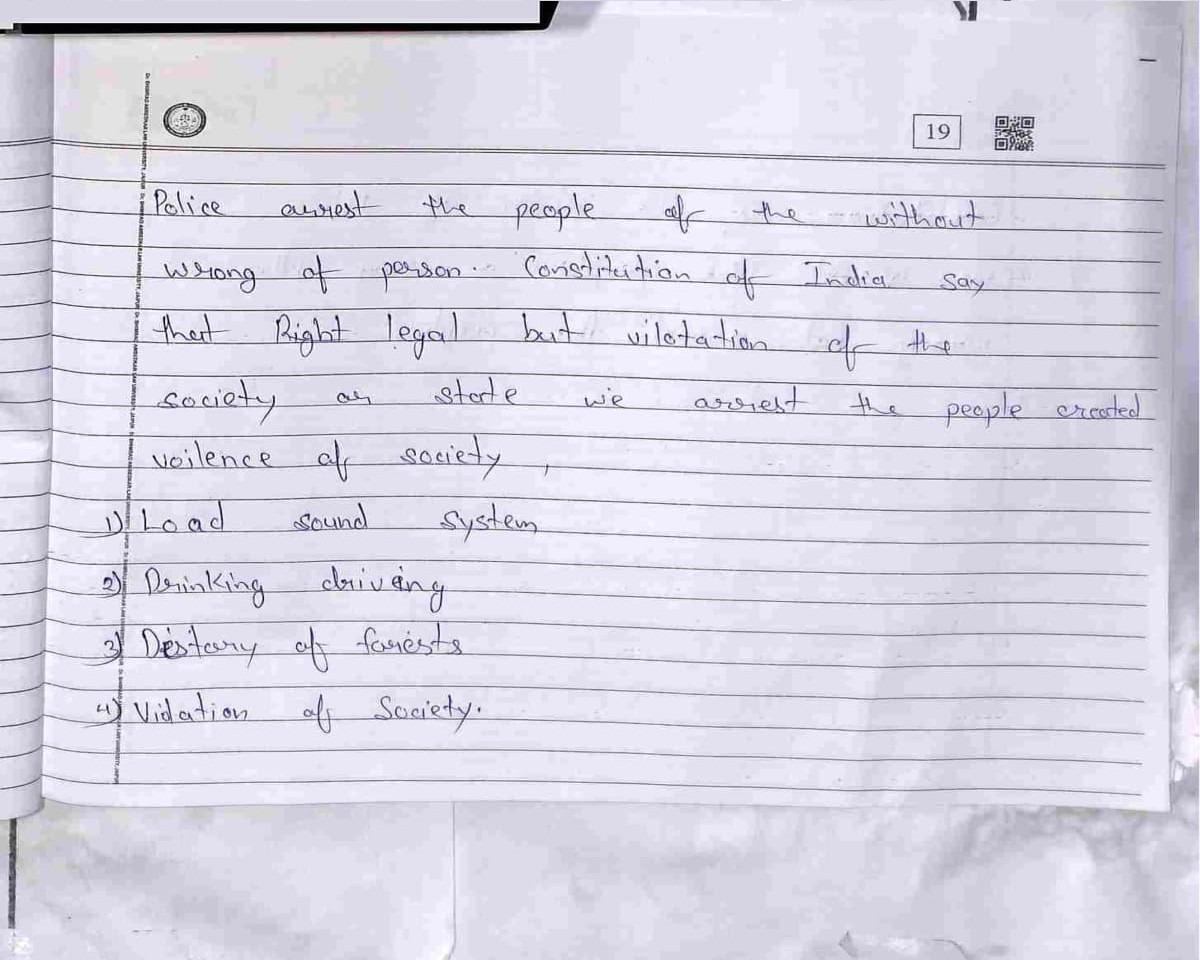 19
Police arrest the people of the without
wrong of person. Constitution of India say
that Right legal but vilotation of the
society or state we arrest the people created
voilence of society,
1) Load sound system
2) Drinking driving
3) Destory of forests
4) Violation of Society.